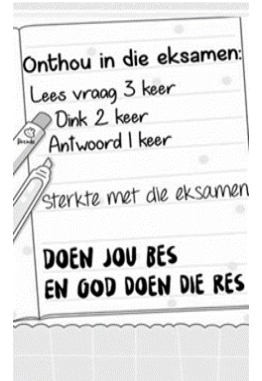 Onthou in die eksamen:
Lees vraag 3 keer
Dink 2 keer
Antwoord 1 keer
Sterkte met die eksamen
DOEN JOU BES
EN GOD DOEN DIE RES